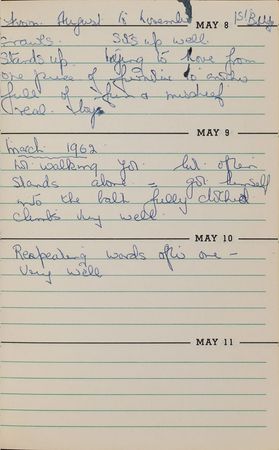 from August to November
MAY 8
1st Baby
Crawls. Sits up well.
Stands up. trying to move from
one piece of furniture to another
full of fun & mischief
real boy
MAY 9
March 1962
No walking yet. but often
stands alone - got himself
into the bath fully clothed
climbs very well.
MAY 10
Reapeating words after one -
Very well
MAY 11